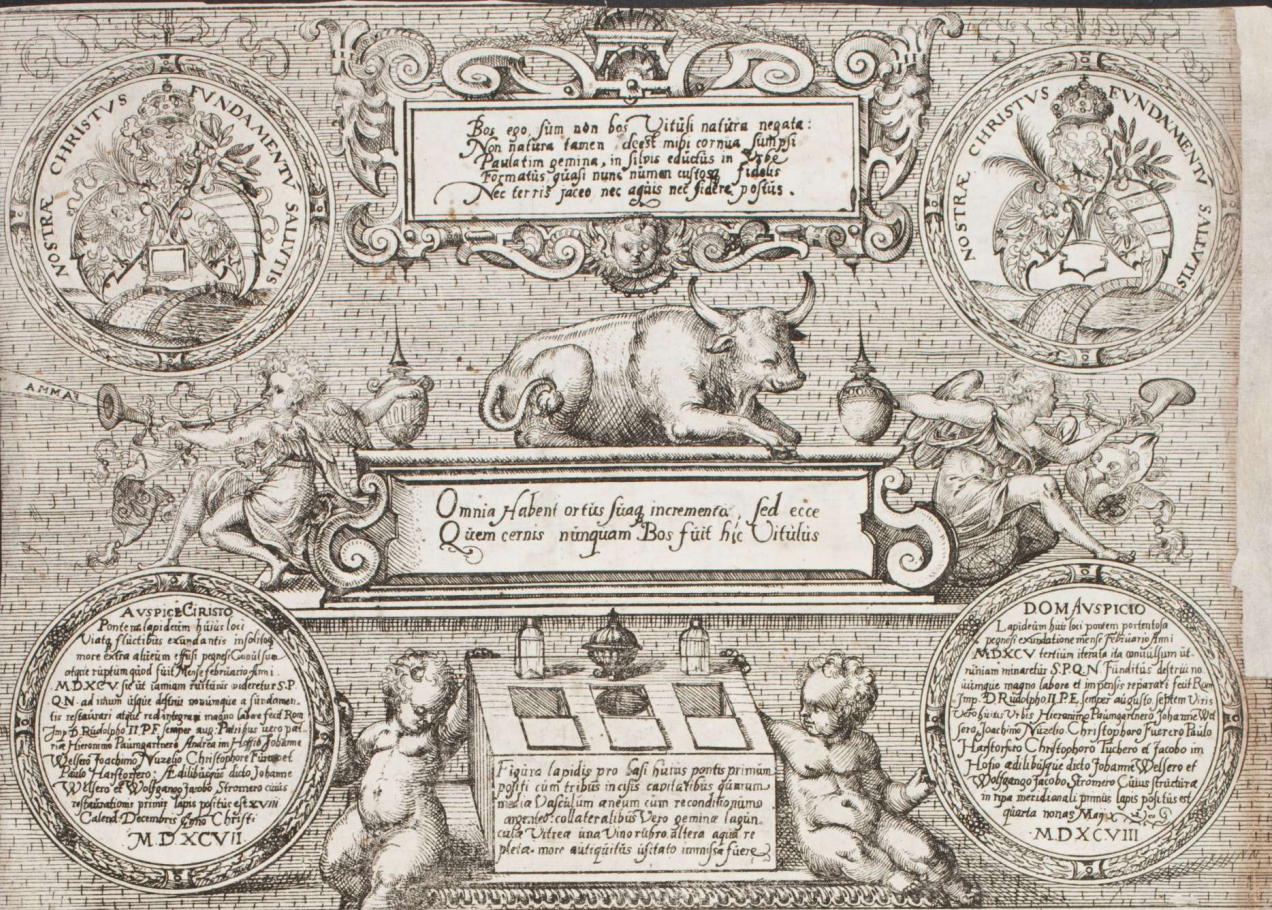 NOSTRÆ CHRISTVS FVNDAMENTV̄ SALVTIS
Bos ego sum non bos Vituli natura negata:
Non natura tamen deest mihi cornua sumpsi
Paulatim gemina, in silvis eductus in Vrbe
Formatus quasi nunc numen custosq fidelis
Nec terris jaceo nec aquis nec sidere postus.
NOSTRÆ CHRISTVS FVNDAMENTV̄ SALVTIS
FAMMA
Omnia Habent ortus suaq incrementa, sed ecce
Quem cernis nunquam Bos fuit hic Vitulus
AVSPICE CIRISTO
Pontem lapideum huius loci
Viatq fluctibus exundantis insolitoq
more extra alveum effusi pegnesi Convulsum
atque ruptum quod fuit Mense februario Anni
MDXCV sic ut iamiam ruiturus videretur S.P.
QN. ad imum usque destrui novumque a fundamen-
tis restaurari atque redintegrari magno labore fecit Rom
Imp D. Rudolpho II P.F. semper aug. Patribus vero pat-
riæ Hieronimo Paumgartnero Andrea im Hofio Johanne
Welsero Joachimo Nuzelio Christophore Furero et
Paulo Harstorfero: Ædilibusque dicto Johanne
Welsero et Wolfgango Jacobo Stromero cuius
restaurationis primus lapis positus est XVIII
Calend Decembris Anno Christi
M.D.XCVII
Figura lapidis pro basi huius pontis primum
positi cum tribus incisis capitatibus quarum
media Vasculum æneum cum recondito numo
argenteo. collateralibus Vero gemina lagun-
culæ Vitreæ una Vino rubro altera aqua re
pletæ more antiquitus usitato immissa fuere
DOM AVSPICIO
Lapideum huius loci pontem portentosa
pegnesi exundatione mense Februario Anni
MDXCV tertium iterata ita convulsum ut
ruinam minaretur S.P.Q.N Funditus destrui no
vumque magno labore et impensis reparari fecit Rom
Imp. D Rudolpho II P.F. semper augusto, septem Viris
vero huius Vrbis Hieronimo Paumgartnero Johanne Wel
sero, Joachimo Nuzelio Christophoro Fuerero Paulo
Harstorfero Christophoro Tuchero et Jacobo im
Hofio ædilibusque dicto Johanne Welsero et
Wolfgango Jacobo Stromero Cuius structuræ
in ripa meridionali primus lapis positus est
quarta nonas May
MDXCVIII